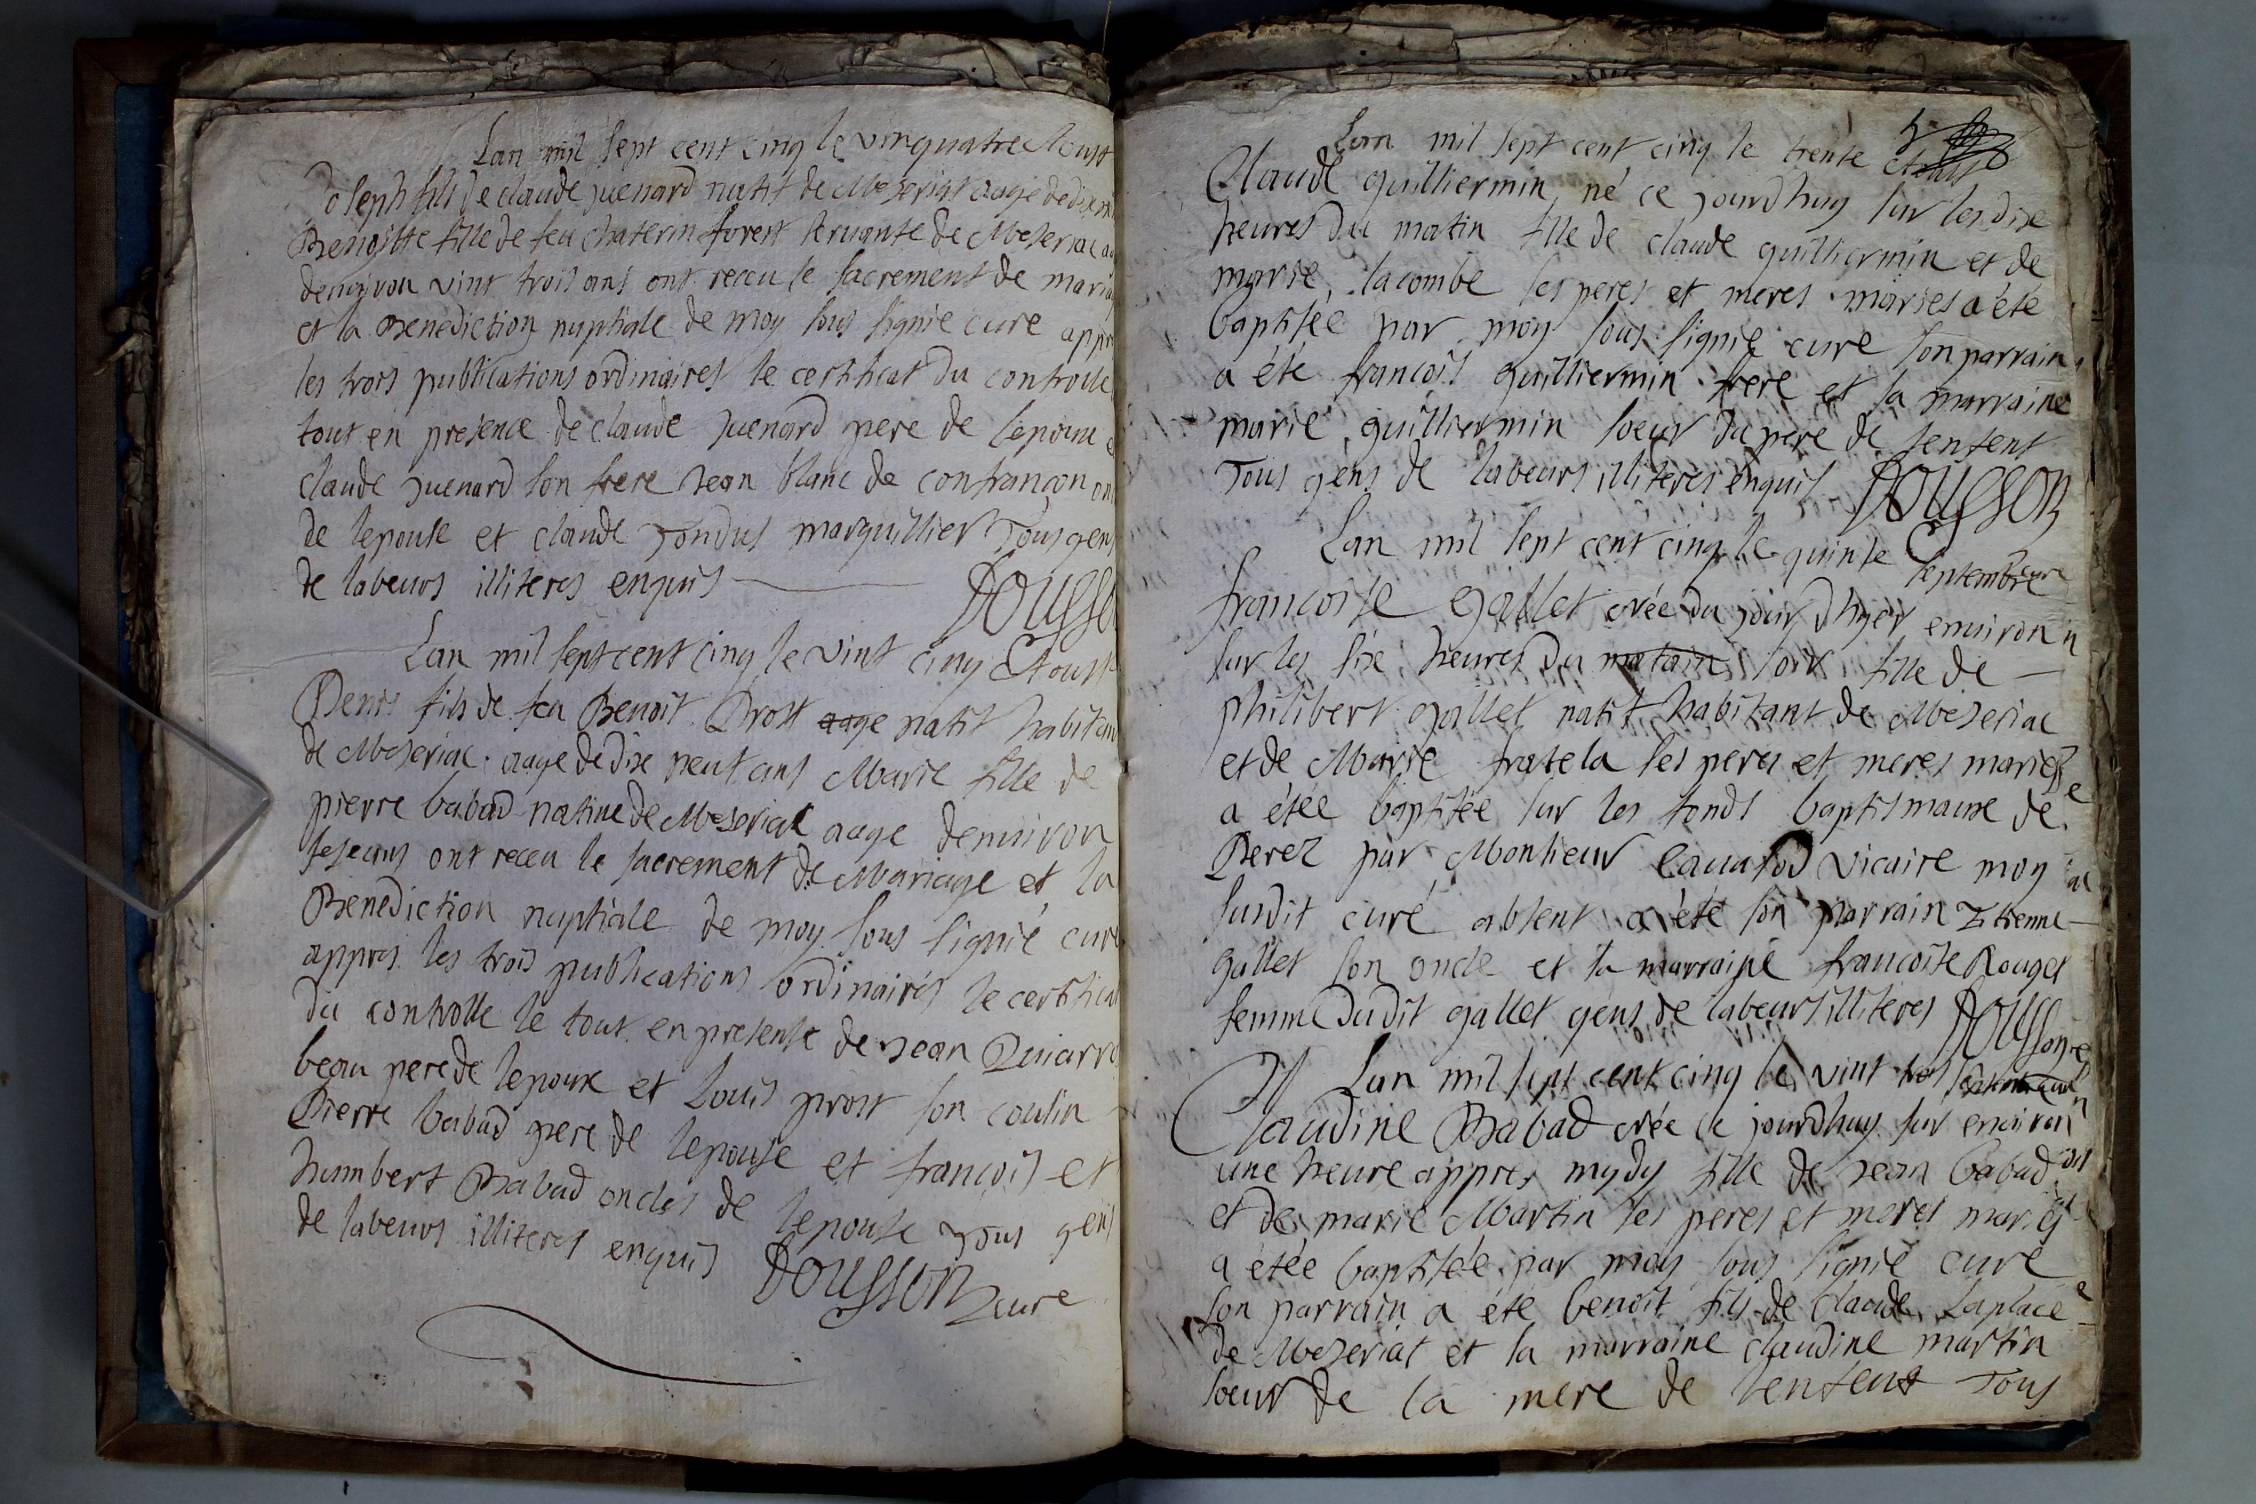 Lan mil sept cent cinq le vinquatre Aoust
Joseph fils de claude Juenard natif de Meseriat aage de dix
Benoitte fille de feu chaterin forest servante de Meseriat
denviron vint trois ans ont receu le sacrement de maria
et la Benediction nuptiale de moy sous signié cure appr
les trois publications ordinaires le certificat du controlle
tout en presence de claude Juenard pere de lepoux e
claude Juenard son frere Jean blanc de confrancon on
de lepouse et claude Tondus marguillier Tous gens
de labeurs illiteres enquis Dousso
Lan mil sept cent cinq le vint cinq Aoust
Denis fils de feu Benoit Prost aage natif habitan
de Meseriat aage de dix neuf ans Marie fille de
pierre babad natiue de Meseriat aage denuiron
seseans ont receu le sacrement de Mariage et la
Benediction nuptiale de moy sous signié cure
appres les trois publications ordinaires le certifica
du controlle le tout en presense de Jean
beau pere de lepoux et Louis prost son cousin
Pierre babad pere de lepouse et francois et
humbert Babad oncles de lepouse Tous gens
de labeurs illiteres enquis Dousson cure
Lan mil sept cent cinq le trente
Claude guilliermin né ce jourdhuy sur les dix
heures du matin fille de claude guilliermin et de
marie lacombe ses peres et meres mariés a été
baptisée par moy sous signié cure son parrain
a été francois guilliermin frere et la marraine
marie guilliermin soeur du pere de lenfent
Tous gens de labeurs illiteres enquis Dousson
cure
Lan mil sept cent cinq le quinse septembre
francoise Gallet crée du jour dhyer environ
sur les six heures du matain soir fille de
philibert gallet natif habitant de Meseriat
et de Marie fratela ses peres et meres mariez
a étée baptisée sur les fonds baptismaux de
Perez par Monsieur vicaire moy
susdit curé absent a été son parrain Etienne
gallet son oncle et la marraine francoise Rouget
femme dudit gallet gens de labeurs illiteres Dousson
Lan mil sept cent cinq le vint
Claudine Babad crée ce jourdhuy sur environ
une heure appres mydy fille de Jean babad
et de marie Martin ses peres et meres mariés
a étée baptisée par moy sous signié cure
son parrain a été benoit fils de Claude Laplace
de Meseriat et la marraine claudine martin
soeur de la mere de lenfent Tous